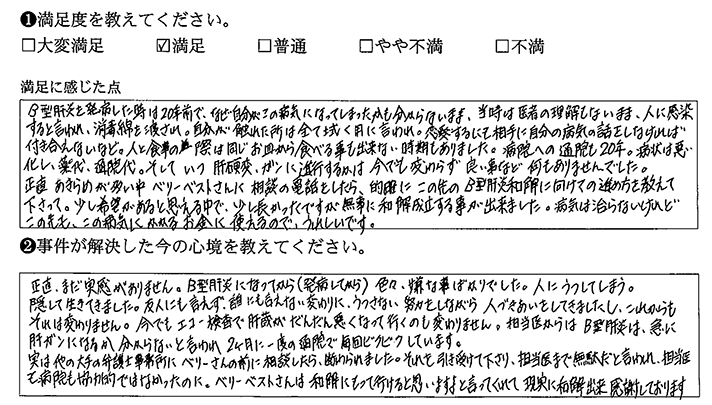 ❶満足度を教えてください。
□大変満足 ☑満足 □普通 □やや不満 □不満
満足に感じた点
B型肝炎を発病した時は20年前で、なぜ自分がこの病気になってしまったかも分からないまま、当時は医者の理解もないまま、人に感染
すると言われ、消毒綿を渡され。自分が触れた所は全て拭く用に言われ。恋愛するにも相手に自分の病気の話をしなければ
付き合えないなど。人と食事の際は同じお皿から食べる事も出来ない時期もありました。病院への通院も20年。病状は悪
化し、薬代、通院代。そして いつ 肝硬変、ガンに進行するかは 今でも変わらず 良い事など 何もありませんでした。
正直 あきらめが多い中 ベリーベストさんに 相談の電話をしたら、的確に この先の B型肝炎和解に向けての進め方を教えて
下さって。少し希望があると思える中で、少し長かったですが無事に和解成立する事が出来ました。病気は治らないけれど
この先も、この病気にかかるお金に使えるので、うれしいです。
❷事件が解決した今の心境を教えてください。
正直、まだ実感がありません。B型肝炎になってから(発病してから)色々、嫌な事ばかりでした。人にうつしてしまう。
隠して生きてきました。友人にも言えず、誰にも言えない変わりに、うつさない 努力をしながら 人づきあいをしてきましたし、これからも
それは変わりません。今でも エコー検査で肝臓が だんだん悪くなって行くのも変わりません。担当医からは B型肝炎は、急に
肝ガンになるか 分からないと言われ 2ヶ月に一度の通院で毎回ビクビクしています。
実は他の大手の弁護士事務所に ベリーさんの前に相談したら、断わられました。それを引き受けて下さり、担当医まで無駄だと言われ、担当医
も病院も協力的ではなかったのに。ベリーベストさんは 和解にもって行けると思いますよと言ってくれて 現実に和解出来 感謝しております